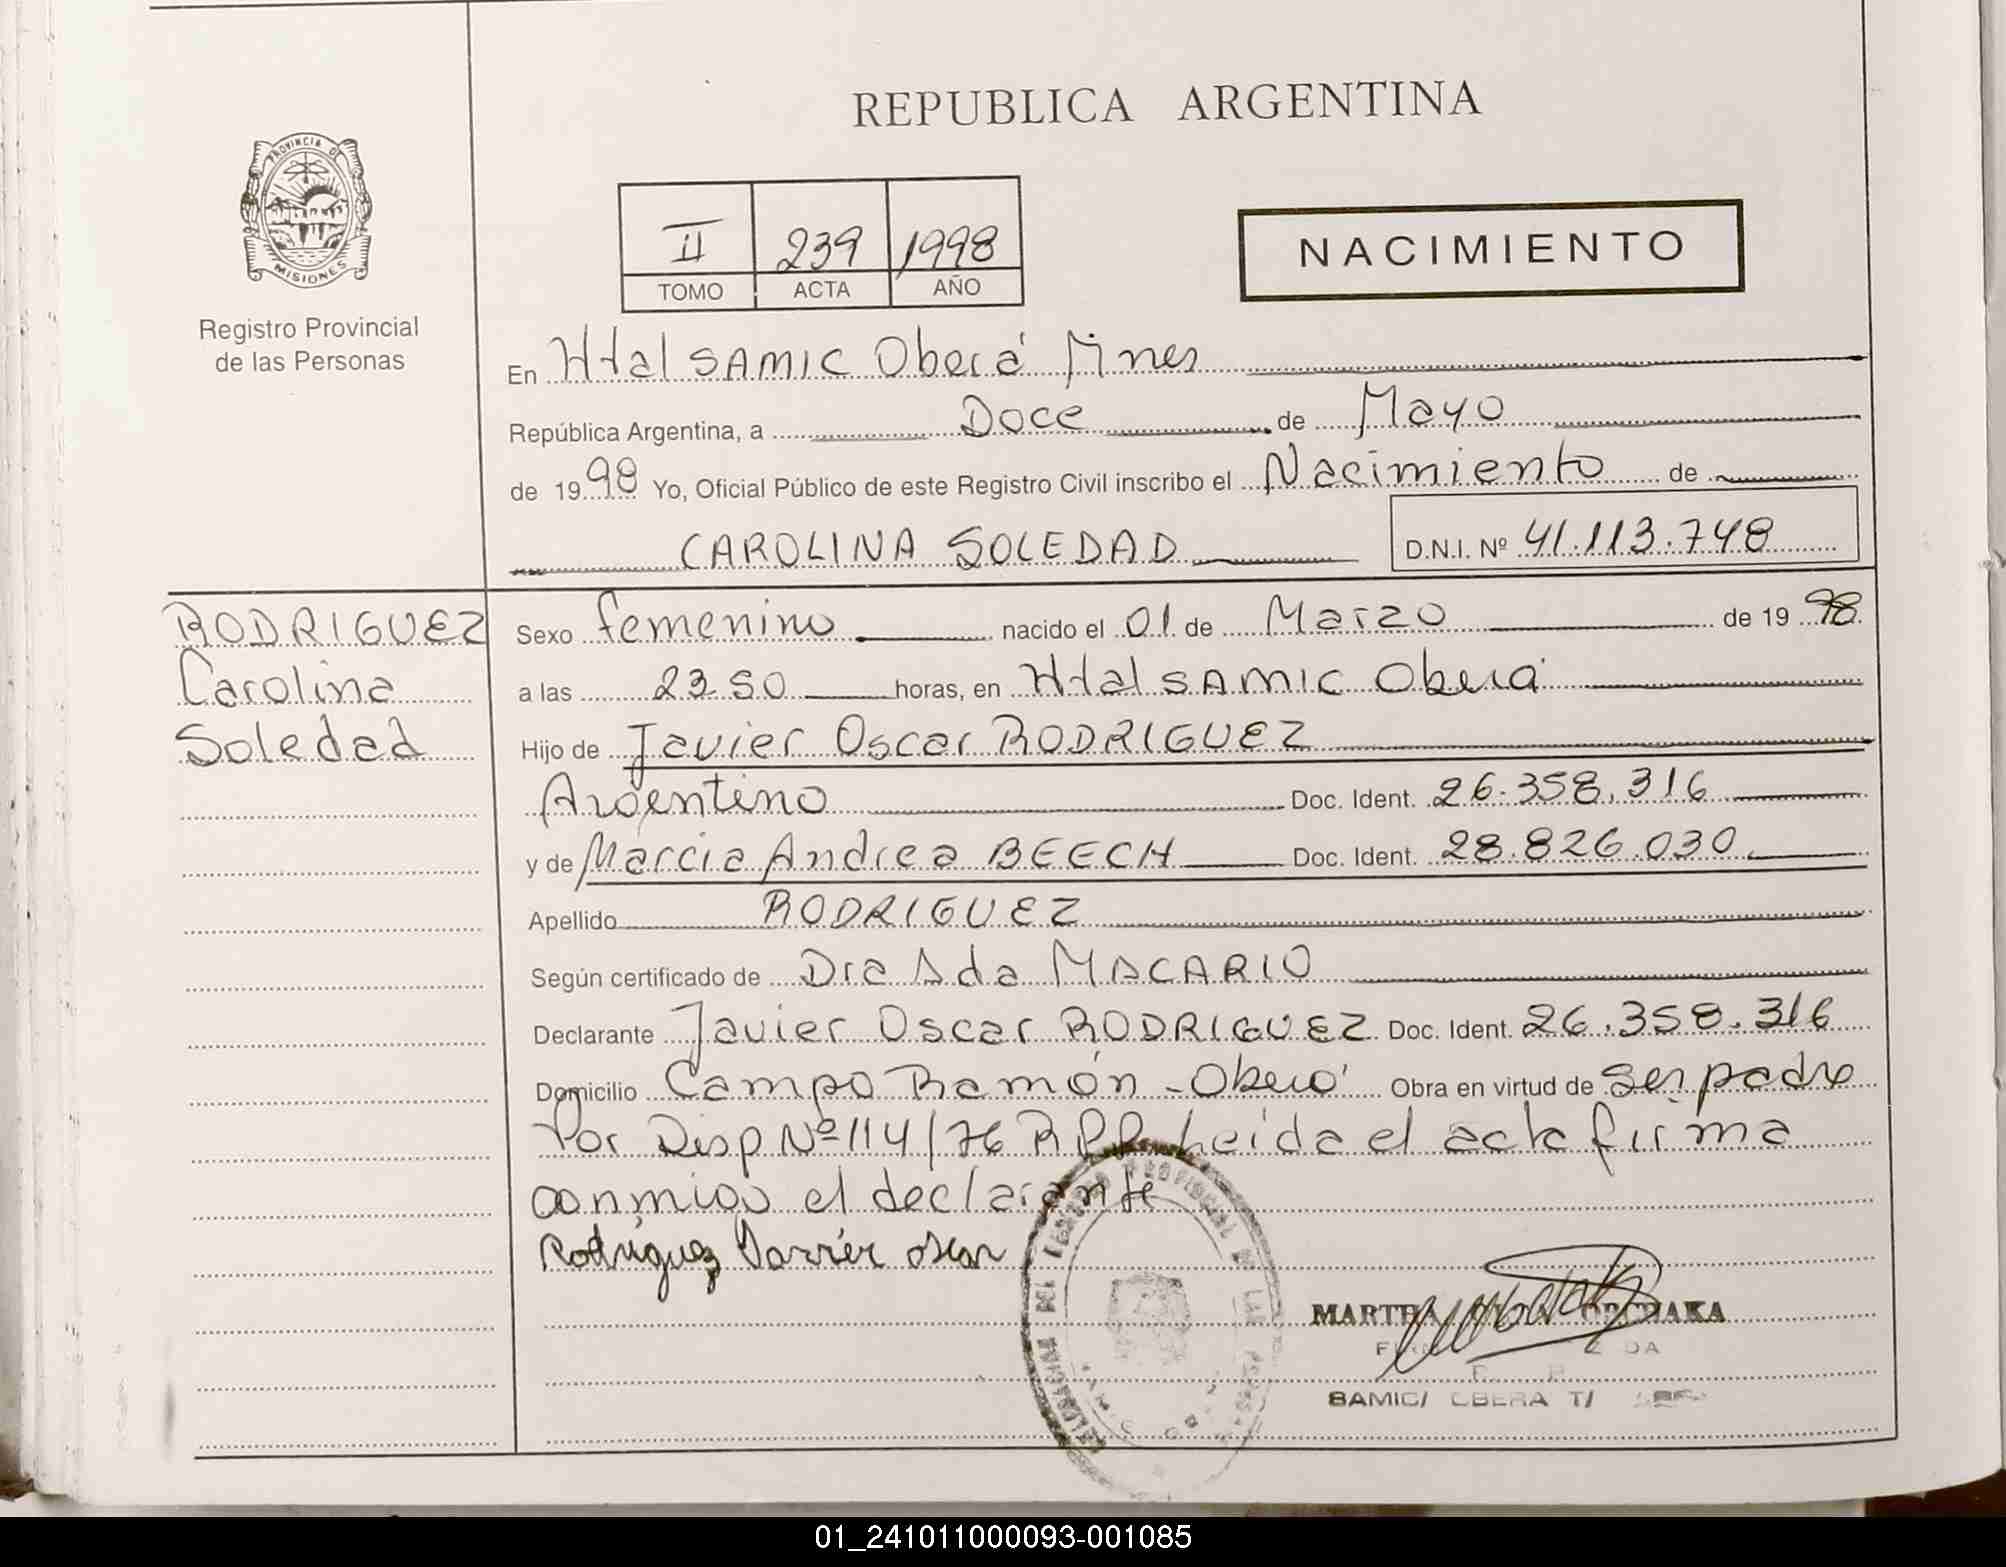 REPUBLICA ARGENTINA
PROVINCIA DE
MISIONES
Registro Provincial
de las Personas
II 239 1998
TOMO ACTA AÑO
NACIMIENTO
En Htal SAMIC Oberá Mnes
República Argentina, a Doce de Mayo
de 1998 Yo, Oficial Público de este Registro Civil inscribo el Nacimiento de
CAROLINA SOLEDAD D.N.I. Nº 41.113.748
RODRIGUEZ
Carolina
Soledad
Sexo femenino nacido el 01 de Marzo de 1998.
a las 23.50 horas, en Htal SAMIC Oberá
Hijo de Javier Oscar RODRIGUEZ
Argentino Doc. Ident. 26.358.316
y de Marcia Andrea BEECH Doc. Ident. 28.826.030
Apellido RODRIGUEZ
Según certificado de Dra Ada MACARIO
Declarante Javier Oscar RODRIGUEZ Doc. Ident. 26.358.316
Domicilio Campo Ramón - Oberá Obra en virtud de ser padre
Por Disp Nº 114/76 RPP Leída el acta firma
conmigo el declarante
Rodriguez Javier Oscar
MARTHA
SAMIC/ OBERA
01_241011000093-001085